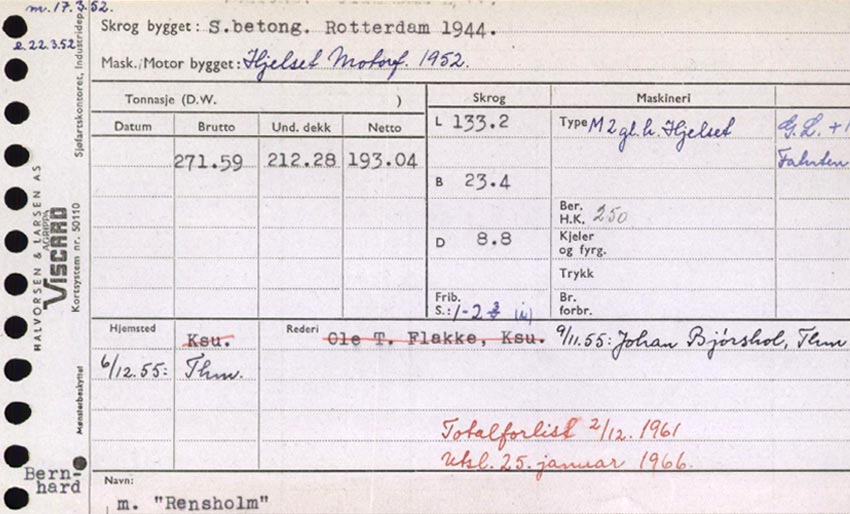 m. 17.3.52.
e. 22.3.52
Skrog bygget: S.betong. Rotterdam 1944.
Mask./Motor bygget: Hjelset Motorf. 1952.
Tonnasje (D.W. )
Skrog
Maskineri
Datum
Brutto
Und. dekk
Netto
271.59
212.28
193.04
L 133.2
B 23.4
D 8.8
Frib.
S.: 1-2
Type M 2 gl.h. Hjelset
Ber.
H.K. 250
Kjeler
og fyrg.
Trykk
Br.
forbr.
G.L. +1
Fahrten
Hjemsted
Ksu.
6/12.55: Thm.
Rederi
Ole T. Flakke, Ksu.
9/11.55: Johan Bjórshol, Thm
Totalforlist 2/12. 1961
Utsl. 25. januar 1966.
Navn:
m. "Rensholm"
Bern-
hard
HALVORSEN & LARSEN AS
AGRIPPA
VISCARD
Kortsystem nr. 50110
Sjøfartskontoret, Industridep.
Mønsterbeskyttet